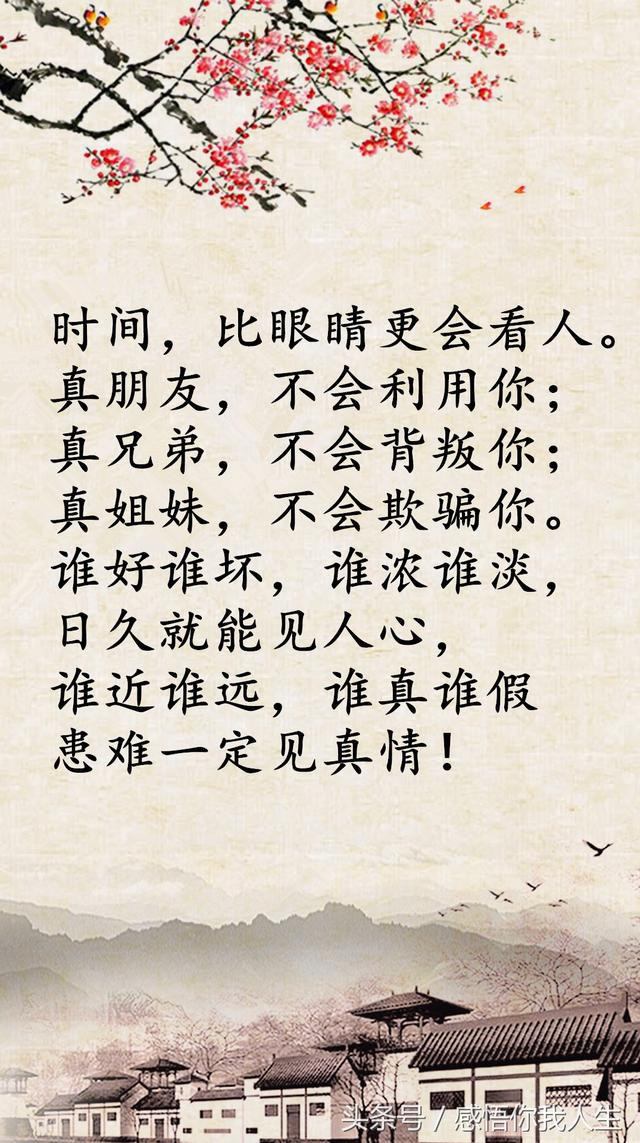 时间，比眼睛更会看人。
真朋友，不会利用你；
真兄弟，不会背叛你；
真姐妹，不会欺骗你。
谁好谁坏，谁浓谁淡，
日久就能见人心，
谁近谁远，谁真谁假
患难一定见真情！
头条号／感悟你我人生